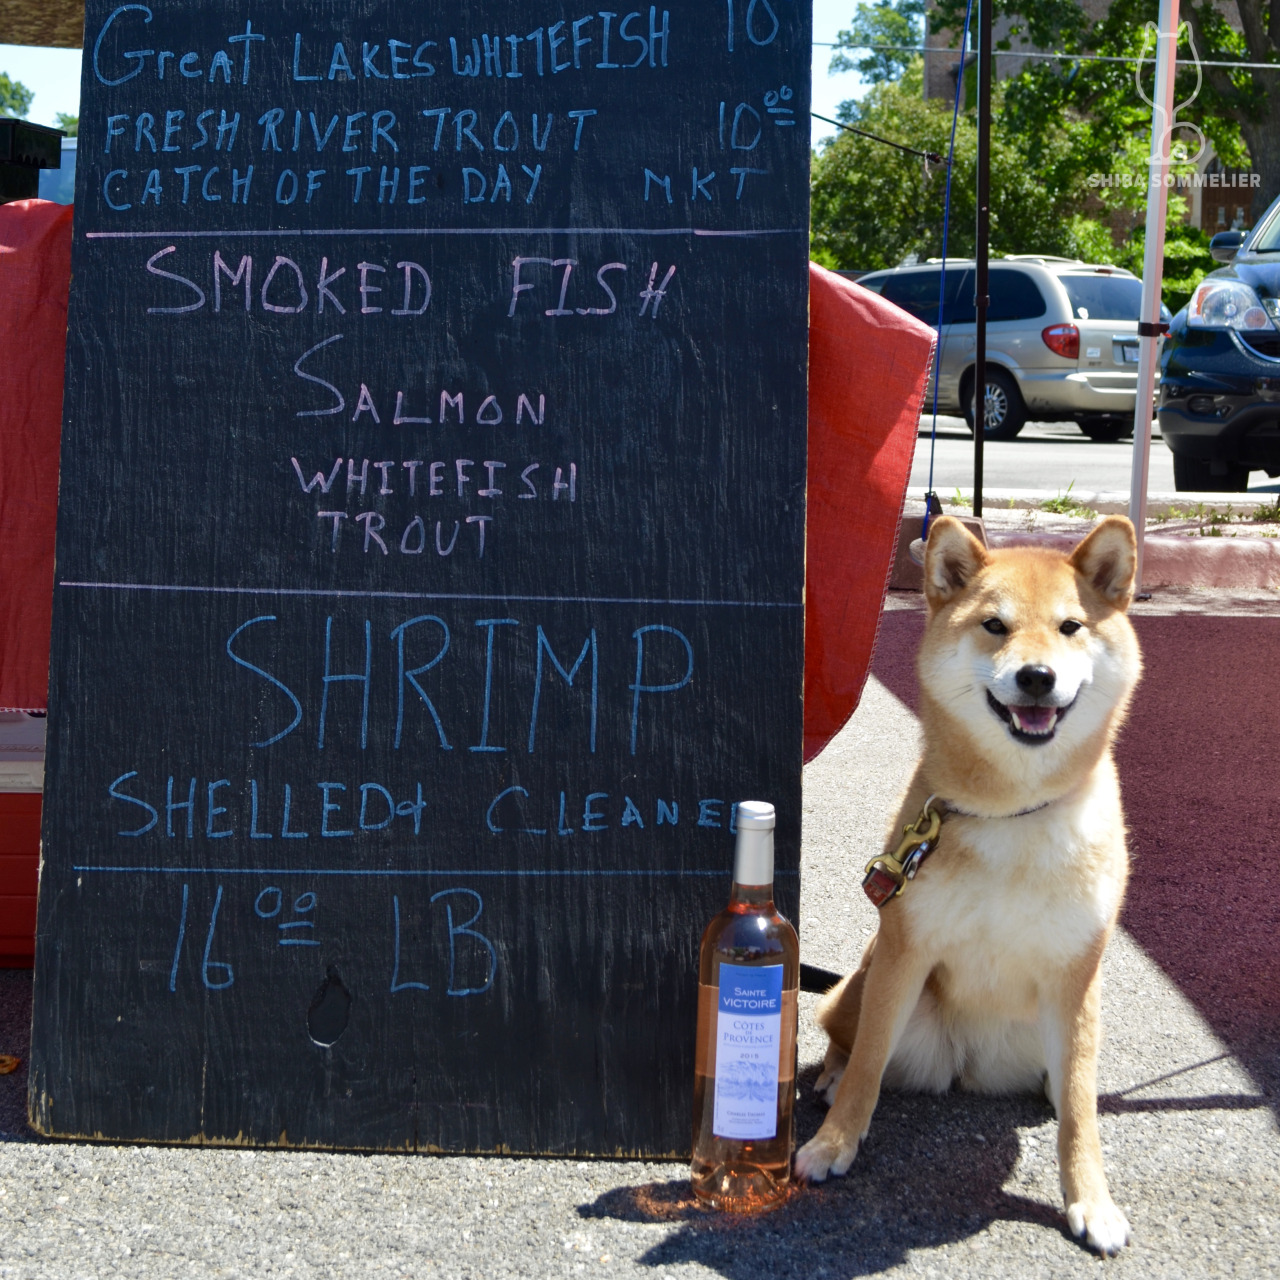 Great LAKES WHITEFISH 10
FRESH RIVER TROUT 10 00
CATCH OF THE DAY MKT
SMOKED FISH
SALMON
WHITEFISH
TROUT
SHRIMP
SHELLED & CLEANED
16 00 LB
SAINTE
VICTOIRE
CÔTES
DE
PROVENCE
2015
SHIBA SOMMELIER